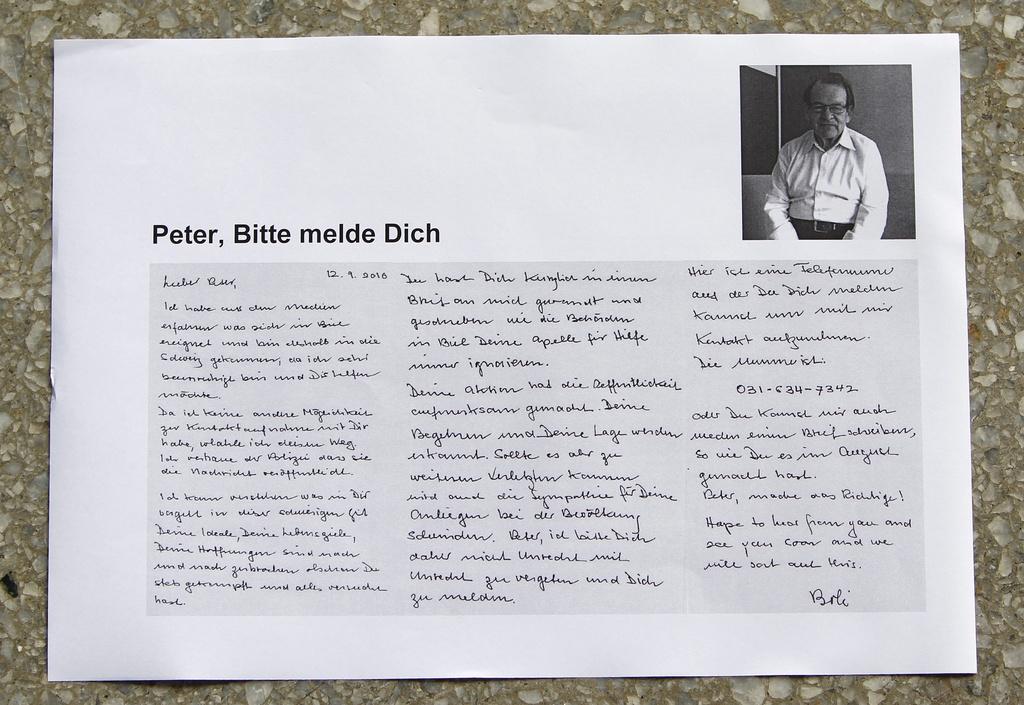 Peter, Bitte melde Dich
12.9.2010
Lieber Peter,
Ich habe aus den Medien
erfahren was sich in Biel
ereignet und bin deshalb in die
Schweiz gekommen, da ich sehr
beunruhigt bin und Dir helfen
möchte.
Da ich keine andere Möglichkeit
zur Kontaktaufnahme mit Dir
habe, wähle ich diesen Weg.
Ich vertraue der Polizei dass sie
die Nachricht veröffentlicht.
Ich kann verstehen was in Dir
vorgeht in dieser schwierigen Zeit
Deine Ideale, Deine Lebensziele,
Deine Hoffnungen sind nach
und nach zerbrochen obschon Du
stets gekämpft und alles versucht
hast.
Du hast Dich kürzlich in einem
Brief an mich gewandt und
geschrieben wie die Behörden
in Biel Deine Apelle für Hilfe
immer ignorieren.
Deine Aktion hat die Oeffentlichkeit
aufmerksam gemacht. Deine
Begehren und Deine Lage werden
erkannt. Sollte es aber zu
weiteren Verletzten kommen
wird auch die Sympathie für Deine
Anliegen bei der Bevölkerung
schwinden. Peter, ich bitte Dich
daher nicht Unrecht mit
Unrecht zu vergelten und Dich
zu melden.
Hier ist eine Telefonnummer
auf der Du Dich melden
kannst um mit mir
Kontakt aufzunehmen.
Die Nummer ist:
031-634-7342
oder Du kannst mir auch
wieder einen Brief schreiben,
so wie Du es im August
gemacht hast.
Peter, mache das Richtige!
Hope to hear from you and
see you soon and we
will sort out this.